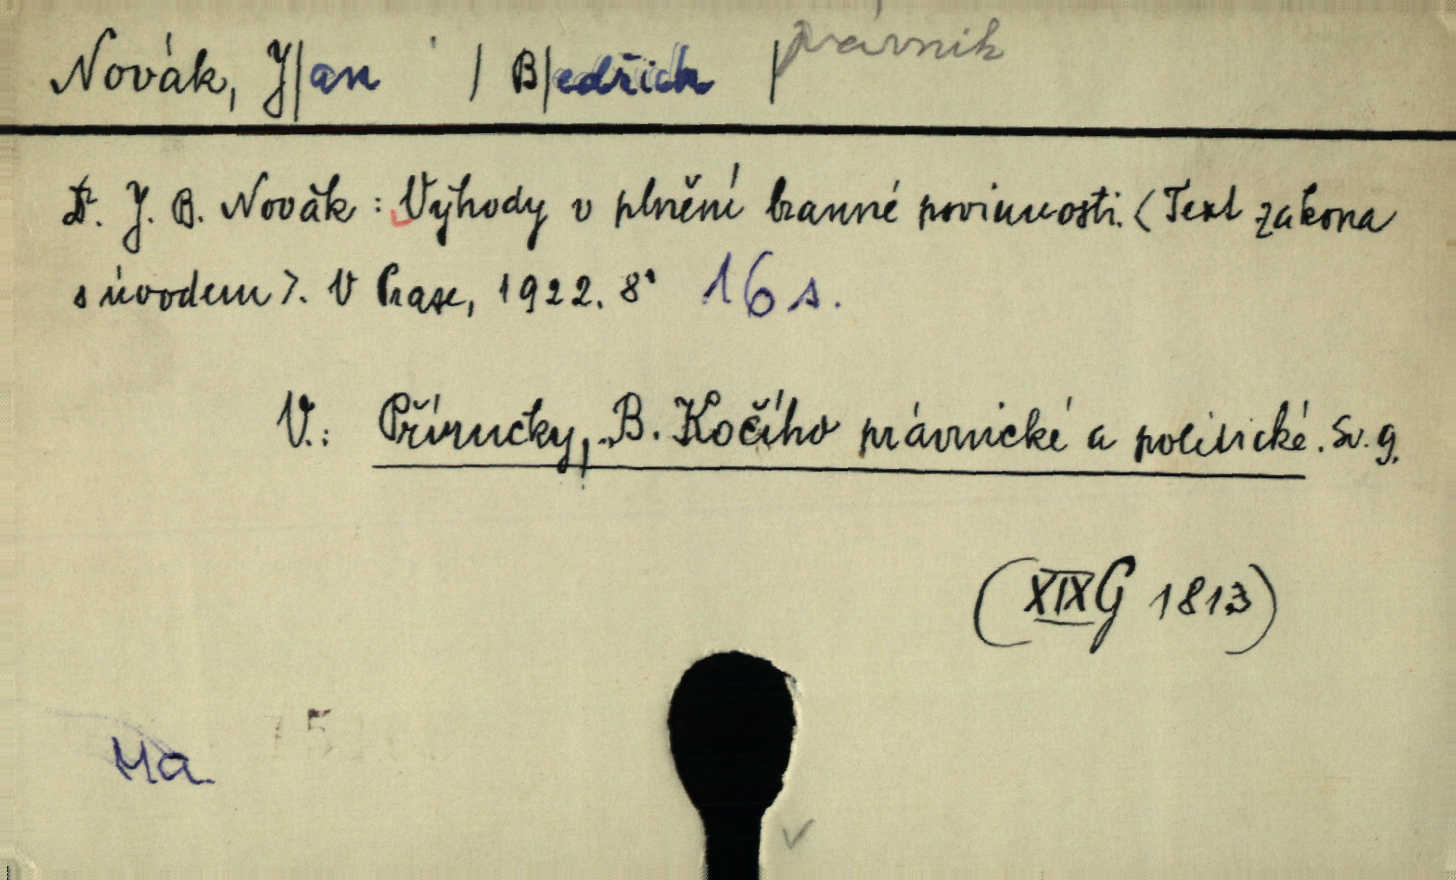 Novák, J|an | B|edřich | právník
Dr. J. B. Novák: Výhody v plnění branné povinnosti. (Text zákona
s úvodem). V Praze, 1922. 8° 16 s.
V.: Příručky, B. Kočího právnické a politické. Sv. 9.
(XIX G 1813)
Ma.